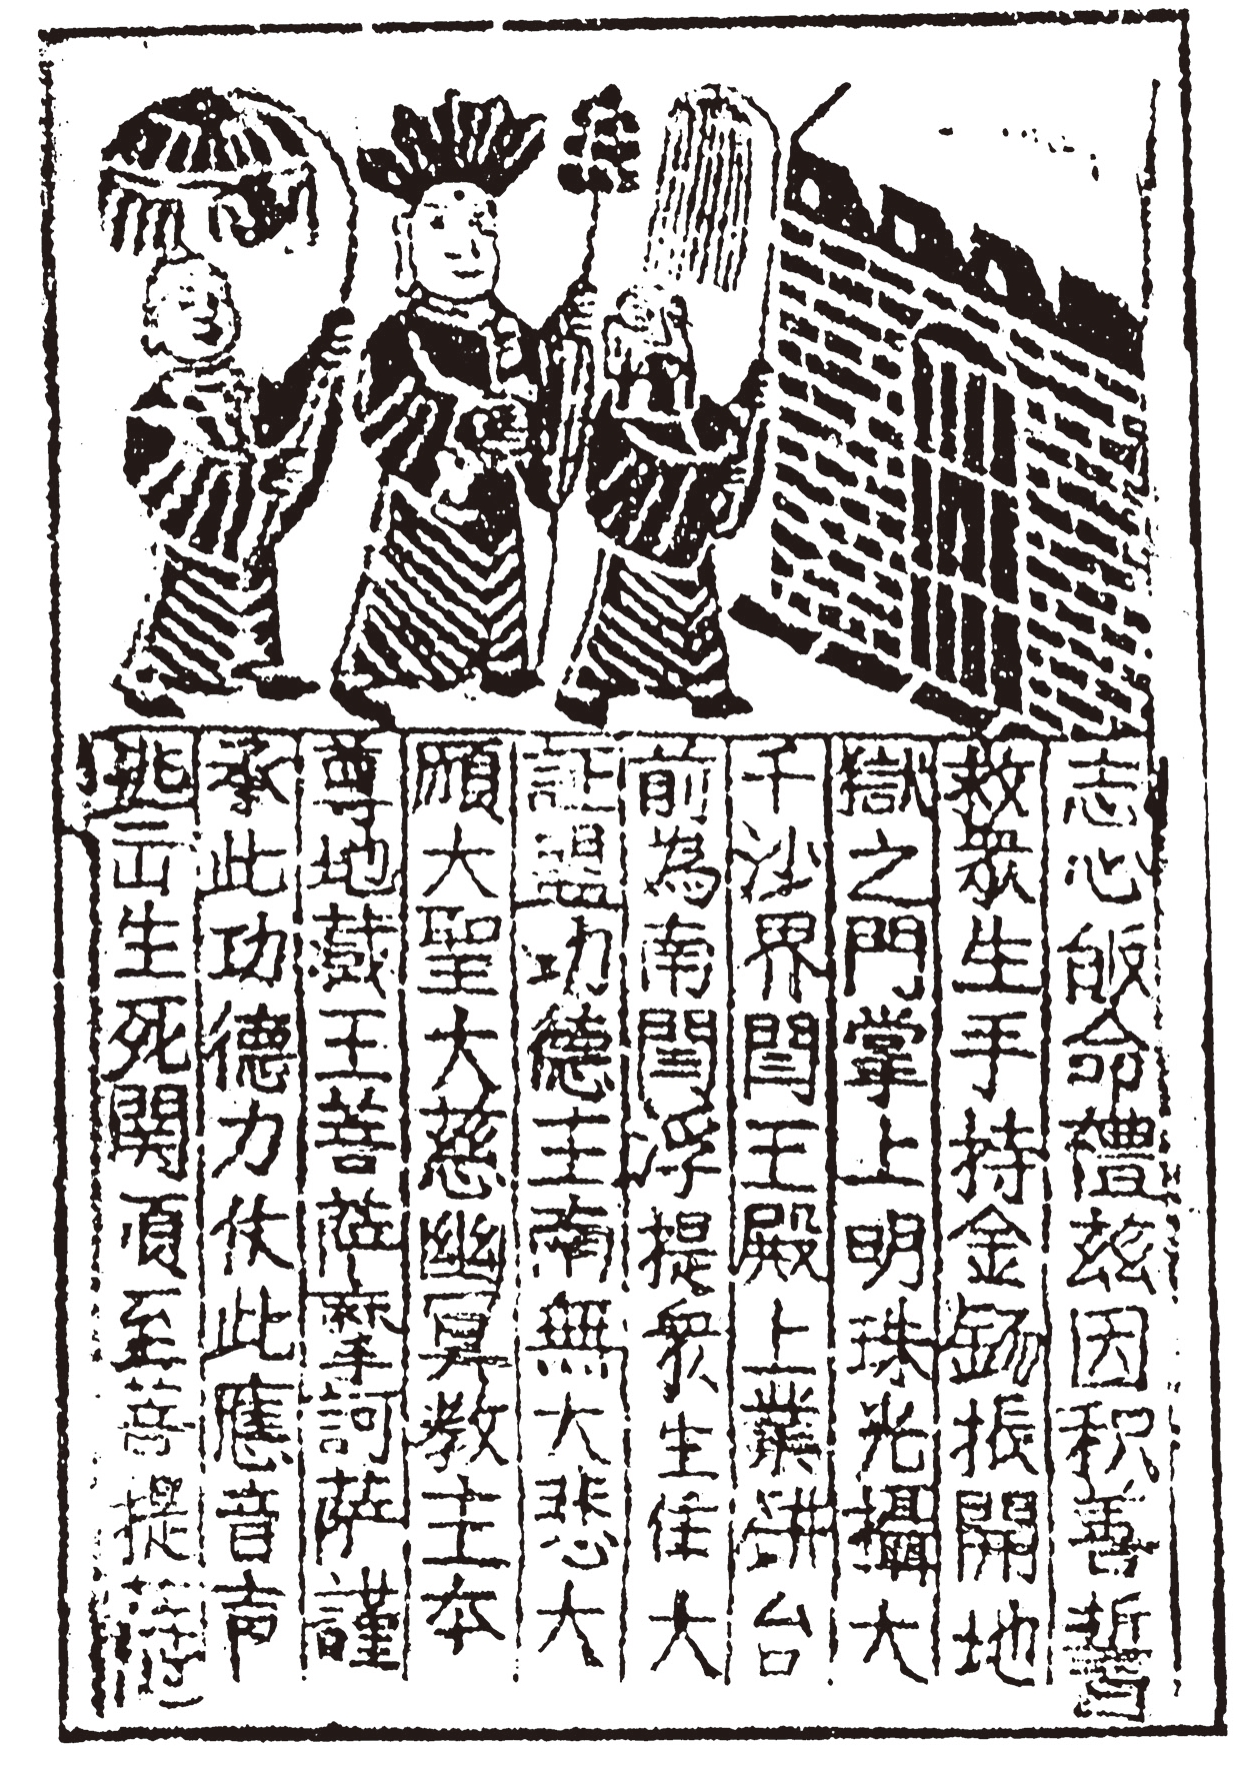 志心皈命禮玆因积善誓
救衆生手持金錫振開地
獄之門掌上明珠光攝大
千沙界閻王殿上業𫡏台
前為南閻浮提衆生住大
証盟功德主南無大悲大
願大聖大慈幽冥教主本
尊地藏王菩薩摩訶薩謹
承此功德力仗此應音声
迯出生死関頂至菩提